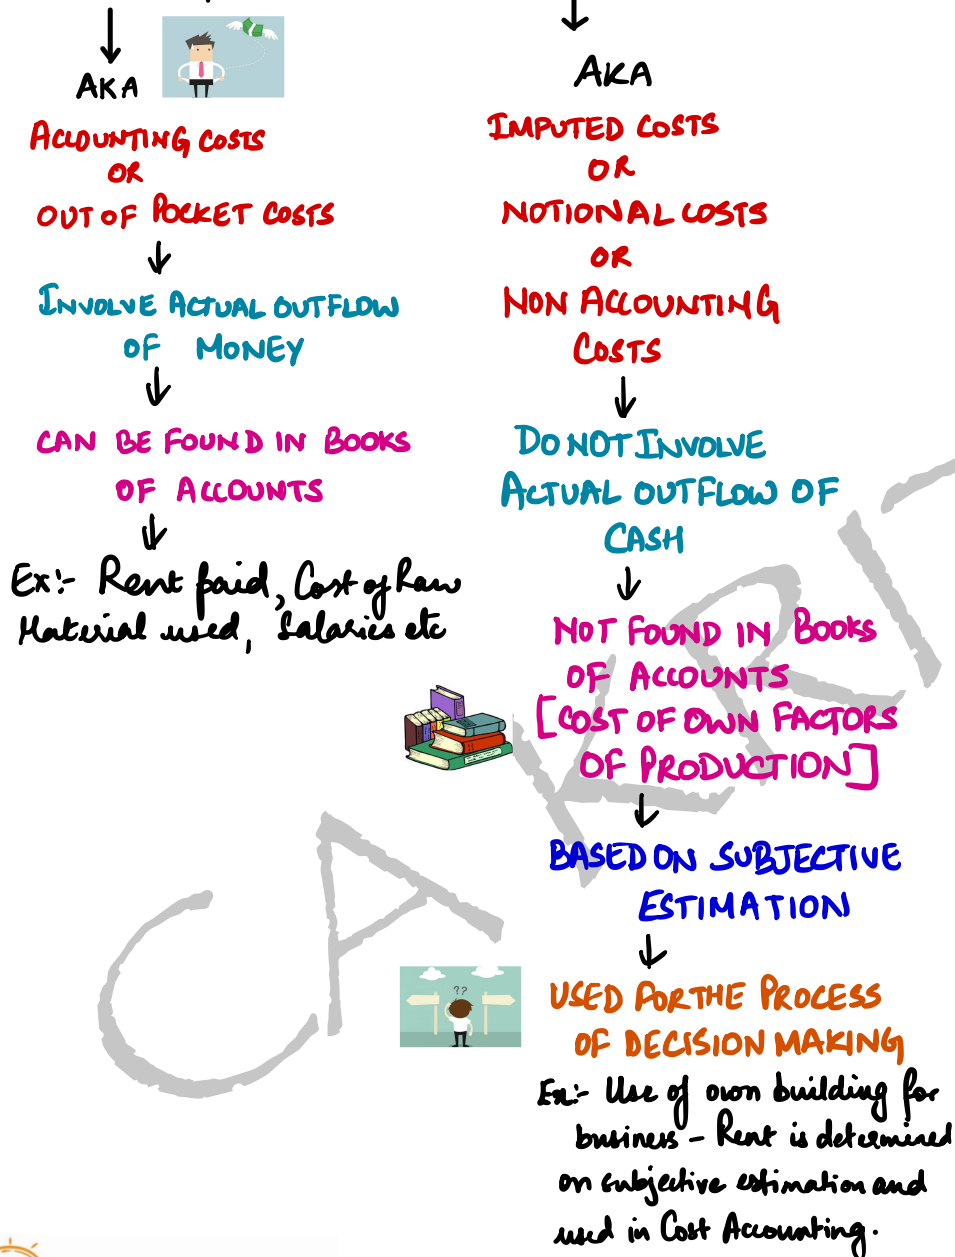 AKA
ACCOUNTING COSTS
OR
OUT OF POCKET COSTS
INVOLVE ACTUAL OUTFLOW
OF MONEY
CAN BE FOUND IN BOOKS
OF ACCOUNTS
Ex:- Rent paid, Cost of Raw
Material used, Salaries etc
AKA
IMPUTED COSTS
OR
NOTIONAL COSTS
OR
NON ACCOUNTING
COSTS
DO NOT INVOLVE
ACTUAL OUTFLOW OF
CASH
NOT FOUND IN BOOKS
OF ACCOUNTS
[COST OF OWN FACTORS
OF PRODUCTION]
BASED ON SUBJECTIVE
ESTIMATION
??
USED FOR THE PROCESS
OF DECISION MAKING
Ex:- Use of own building for
business - Rent is determined
on subjective estimation and
used in Cost Accounting.
CA KRI